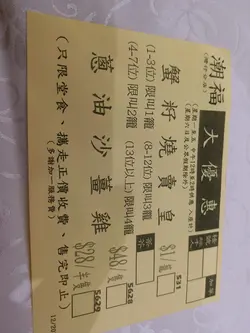 潮福
大優惠
蟹籽燒賣皇 $1/籠 S31
(1-3位)限叫1籠 (8-12位)限叫3籠
(4-7位)限叫2籠 (13位以上)限叫4籠
蔥油沙薑雞 $48 S628
$28/半隻 S629
(只限堂食、攜走正價收費、售完即止)
(多謝加一服務費)